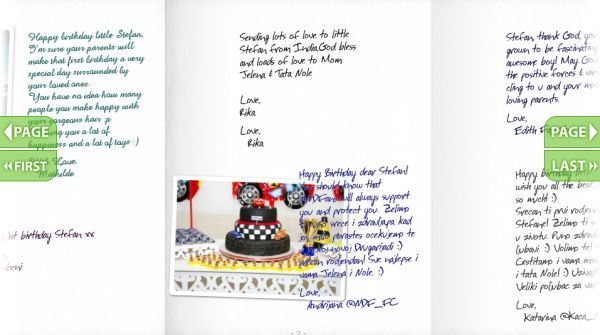 Happy birthday little Stefan,
I'm sure your parents will
make that first birthday a very
special day surrounded by
your loved ones.
You have no idea how many
people you make happy with
your gorgeous hair :p
you a lot of
happiness and a lot of toys :)
Love,
Mathilde
birthday Stefan xx
PAGE
FIRST
Sending lots of love to little
Stefan from India.God bless
and loads of love to Mom
Jelena & Tata Nole
Love,
Rika
Love,
Rika
Happy Birthday dear Stefan!
should know that
will always support
you and protect you. Zelimo
srece i zdravlja, a kad
porastes ocekujemo te
novoj Drugarijadi :)
rodjendan! Sve najlepse i
vama Jelena i Nole. :)
Love,
Andrijana @NDF_FC
Stefan thank God, you
grown to be fascinating
awesome boy! May God
the positive forces
cling to u and your
loving parents.
Love,
Edith
PAGE
LAST
Happy
wish you all the best,
so much! :)
Srecan ti prvi rodjen
Stefane! Zelimo ti
u zivotu. Puno zdrav
ljubavi :) Volimo te!
Cestitamo i vama mama
i tata Nole! :)
Veliki poljubac za
Love,
Katarina @Kaca_